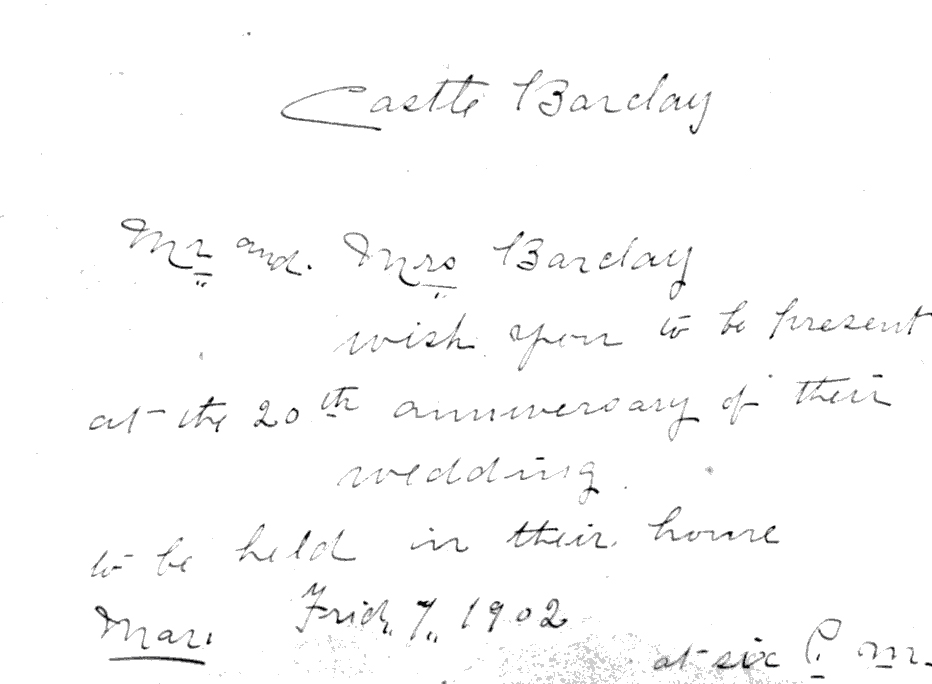 Castle Barclay
Mr and. Mrs Barclay
wish you to be present
at the 20th anniversary of their
wedding.
to be held in their home
Mar. Frid. 7, 1902
at six P. m.